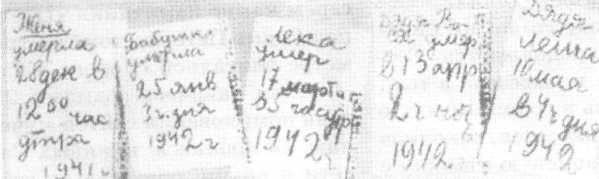 Женя
умерла
28 дек в
12 00 час
утра
1941 г
Бабушка
умерла
25 янв
3 ч. дня
1942 г
Лека
умер
17 марта
в 5 час утра
1942 г
Дядя Ва
ся умер
в 13 апр
2 ч ноч
1942 г
Дядя
Леша
10 мая
в 4 ч дня
1942